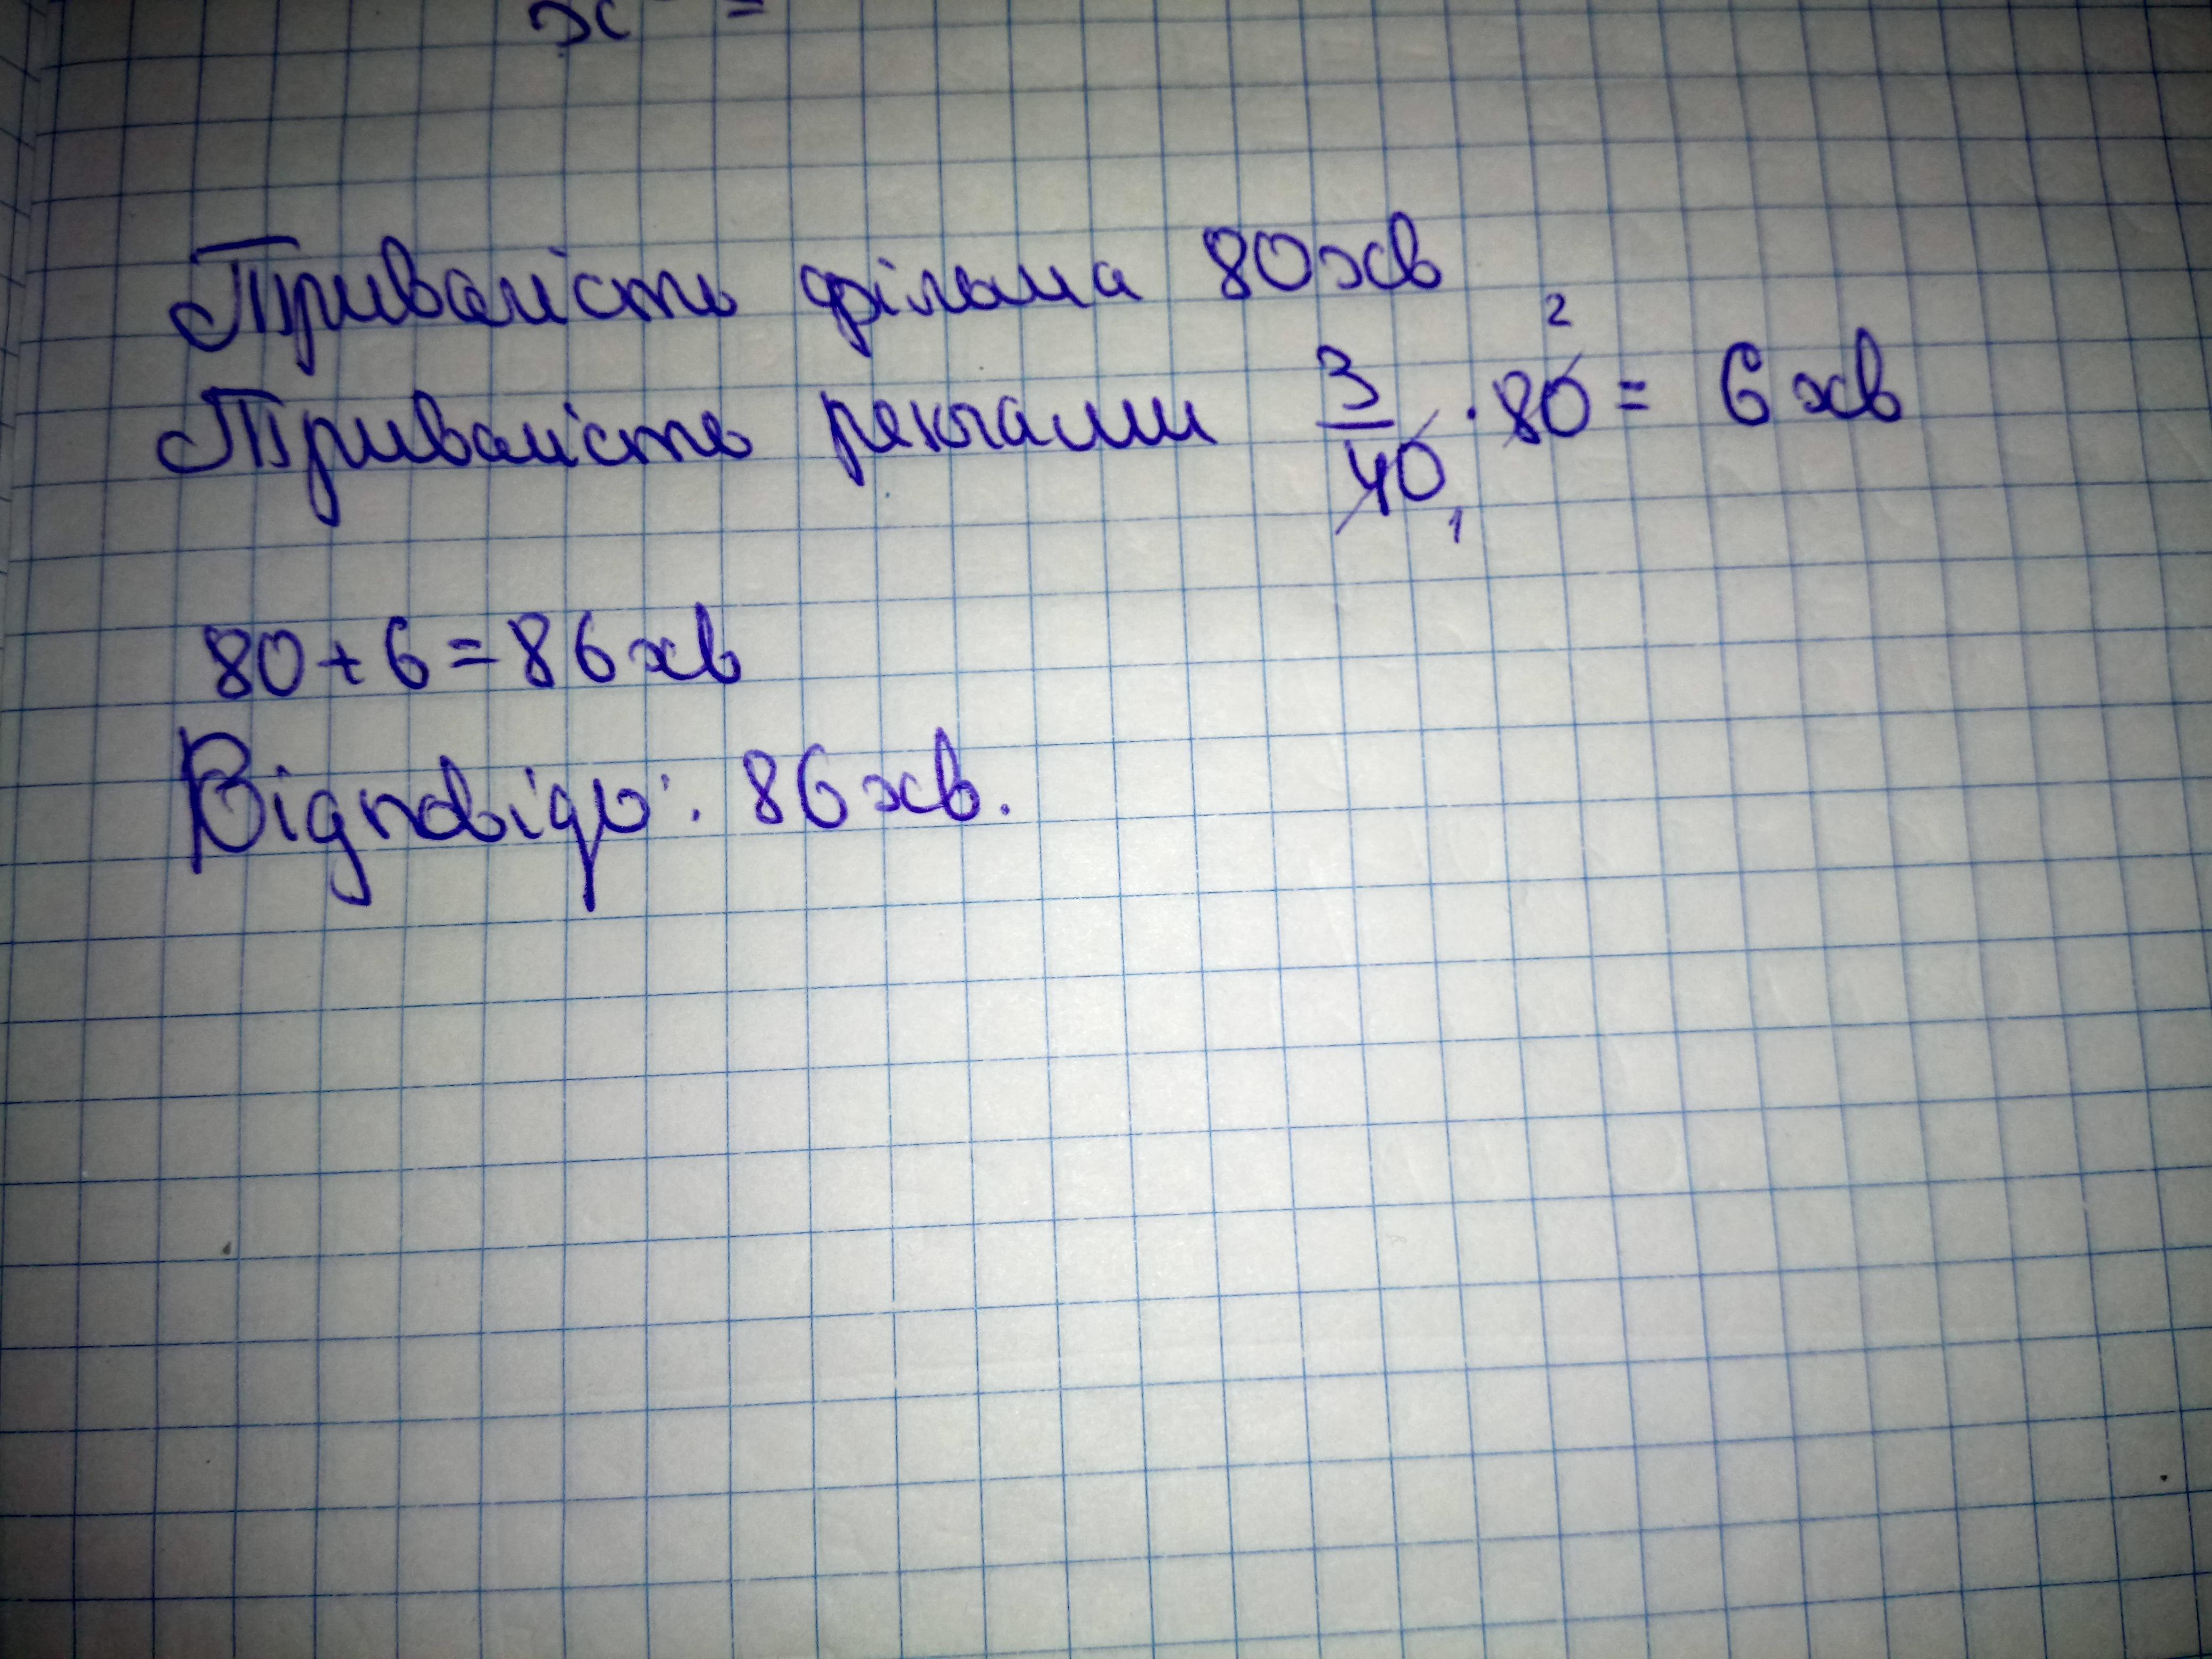 x =
Тривалість фільма 80хв
Тривалість реклами 3/40 · 80 = 6 хв
2
1
80 + 6 = 86 хв
Відповідь: 86 хв.